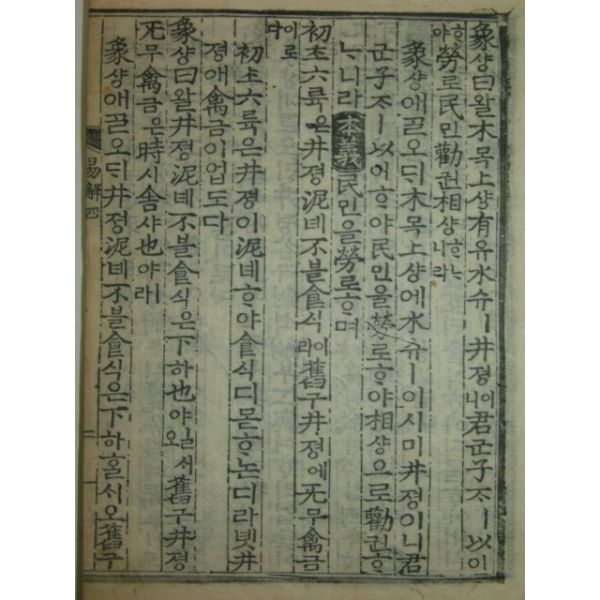 象샹曰왈木목上샹有유水슈ㅣ井졍이니君군子ᄌᆞㅣ以이
ᄒᆞ야勞로民민勸권相샹ᄒᆞᄂᆞ니라
象샹애ᄀᆞᆯ오ᄃᆡ木목上샹에水슈ㅣ이시미井졍이니君
군子ᄌᆞㅣ以이ᄒᆞ야民민을勞로ᄒᆞ야相샹으로勸권ᄒᆞ
ᄂᆞ니라本義民민을勞로ᄒᆞ며
初초六륙은井졍泥녜不블食식이라舊구井졍에无무禽금
이로다
初초六륙은井졍이泥녜ᄒᆞ야食식디몯ᄒᆞ논디라녯井
졍애禽금이업도다
象샹曰왈井졍泥녜不블食식은下하也야일ᄉᆡ오舊구井졍
无무禽금은時시舍샤也야ㅣ라
象샹애ᄀᆞᆯ오ᄃᆡ井졍泥녜不블食식은下하ᄒᆞᆯᄉᆡ오舊구
易解四
二